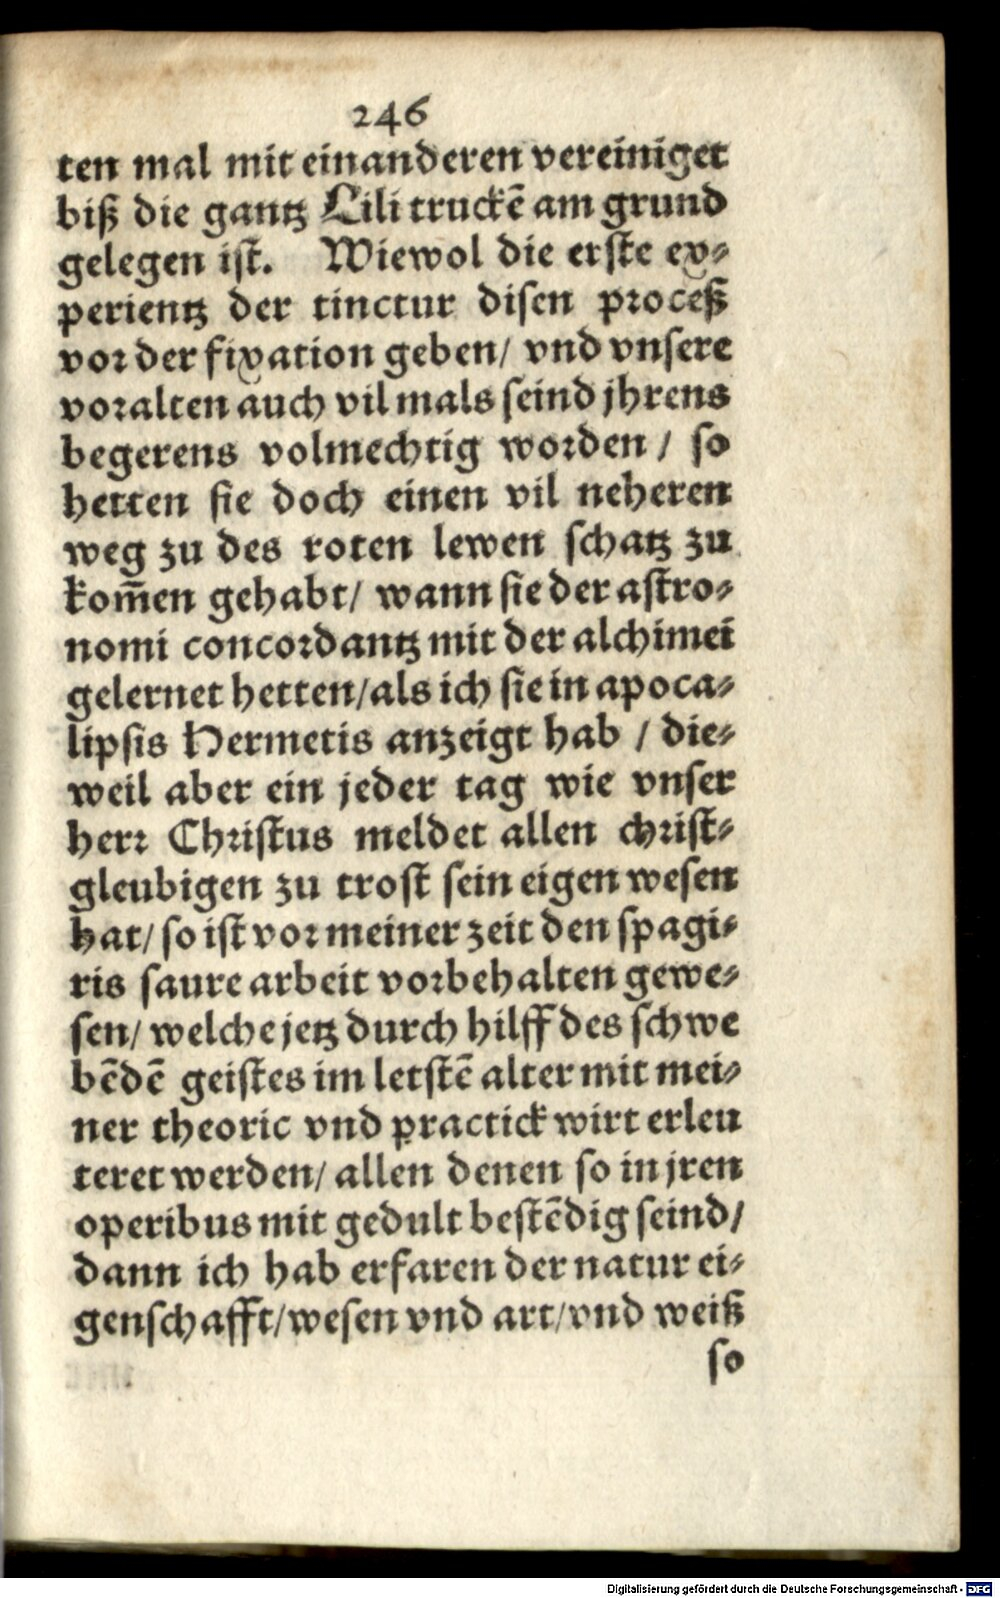 246
ten mal mit einanderen vereiniget
biß die gantz Lili truckē am grund
gelegen ist. Wiewol die erste ex⸗
perientz der tinctur disen proceß
vor der fixation geben/ vnd vnsere
voralten auch vil mals seind jhrens
begerens volmechtig worden / so
hetten sie doch einen vil neheren
weg zu des roten lewen schatz zu
kom̄en gehabt/ wann sie der astro⸗
nomi concordantz mit der alchimei
gelernet hetten/als ich sie in apoca⸗
lipsis Hermetis anzeigt hab / die⸗
weil aber ein jeder tag wie vnser
herr Christus meldet allen christ⸗
gleubigen zu trost sein eigen wesen
hat/ so ist vor meiner zeit den spagi⸗
ris saure arbeit vorbehalten gewe⸗
sen/ welche jetz durch hilff des schwe
bēdē geistes im letstē alter mit mei⸗
ner theoric vnd practick wirt erleu
teret werden/ allen denen so in jren
operibus mit gedult bestēdig seind/
dann ich hab erfaren der natur ei⸗
genschafft/wesen vnd art/vnd weiß
so
Digitalisierung gefördert durch die Deutsche Forschungsgemeinschaft - DFG